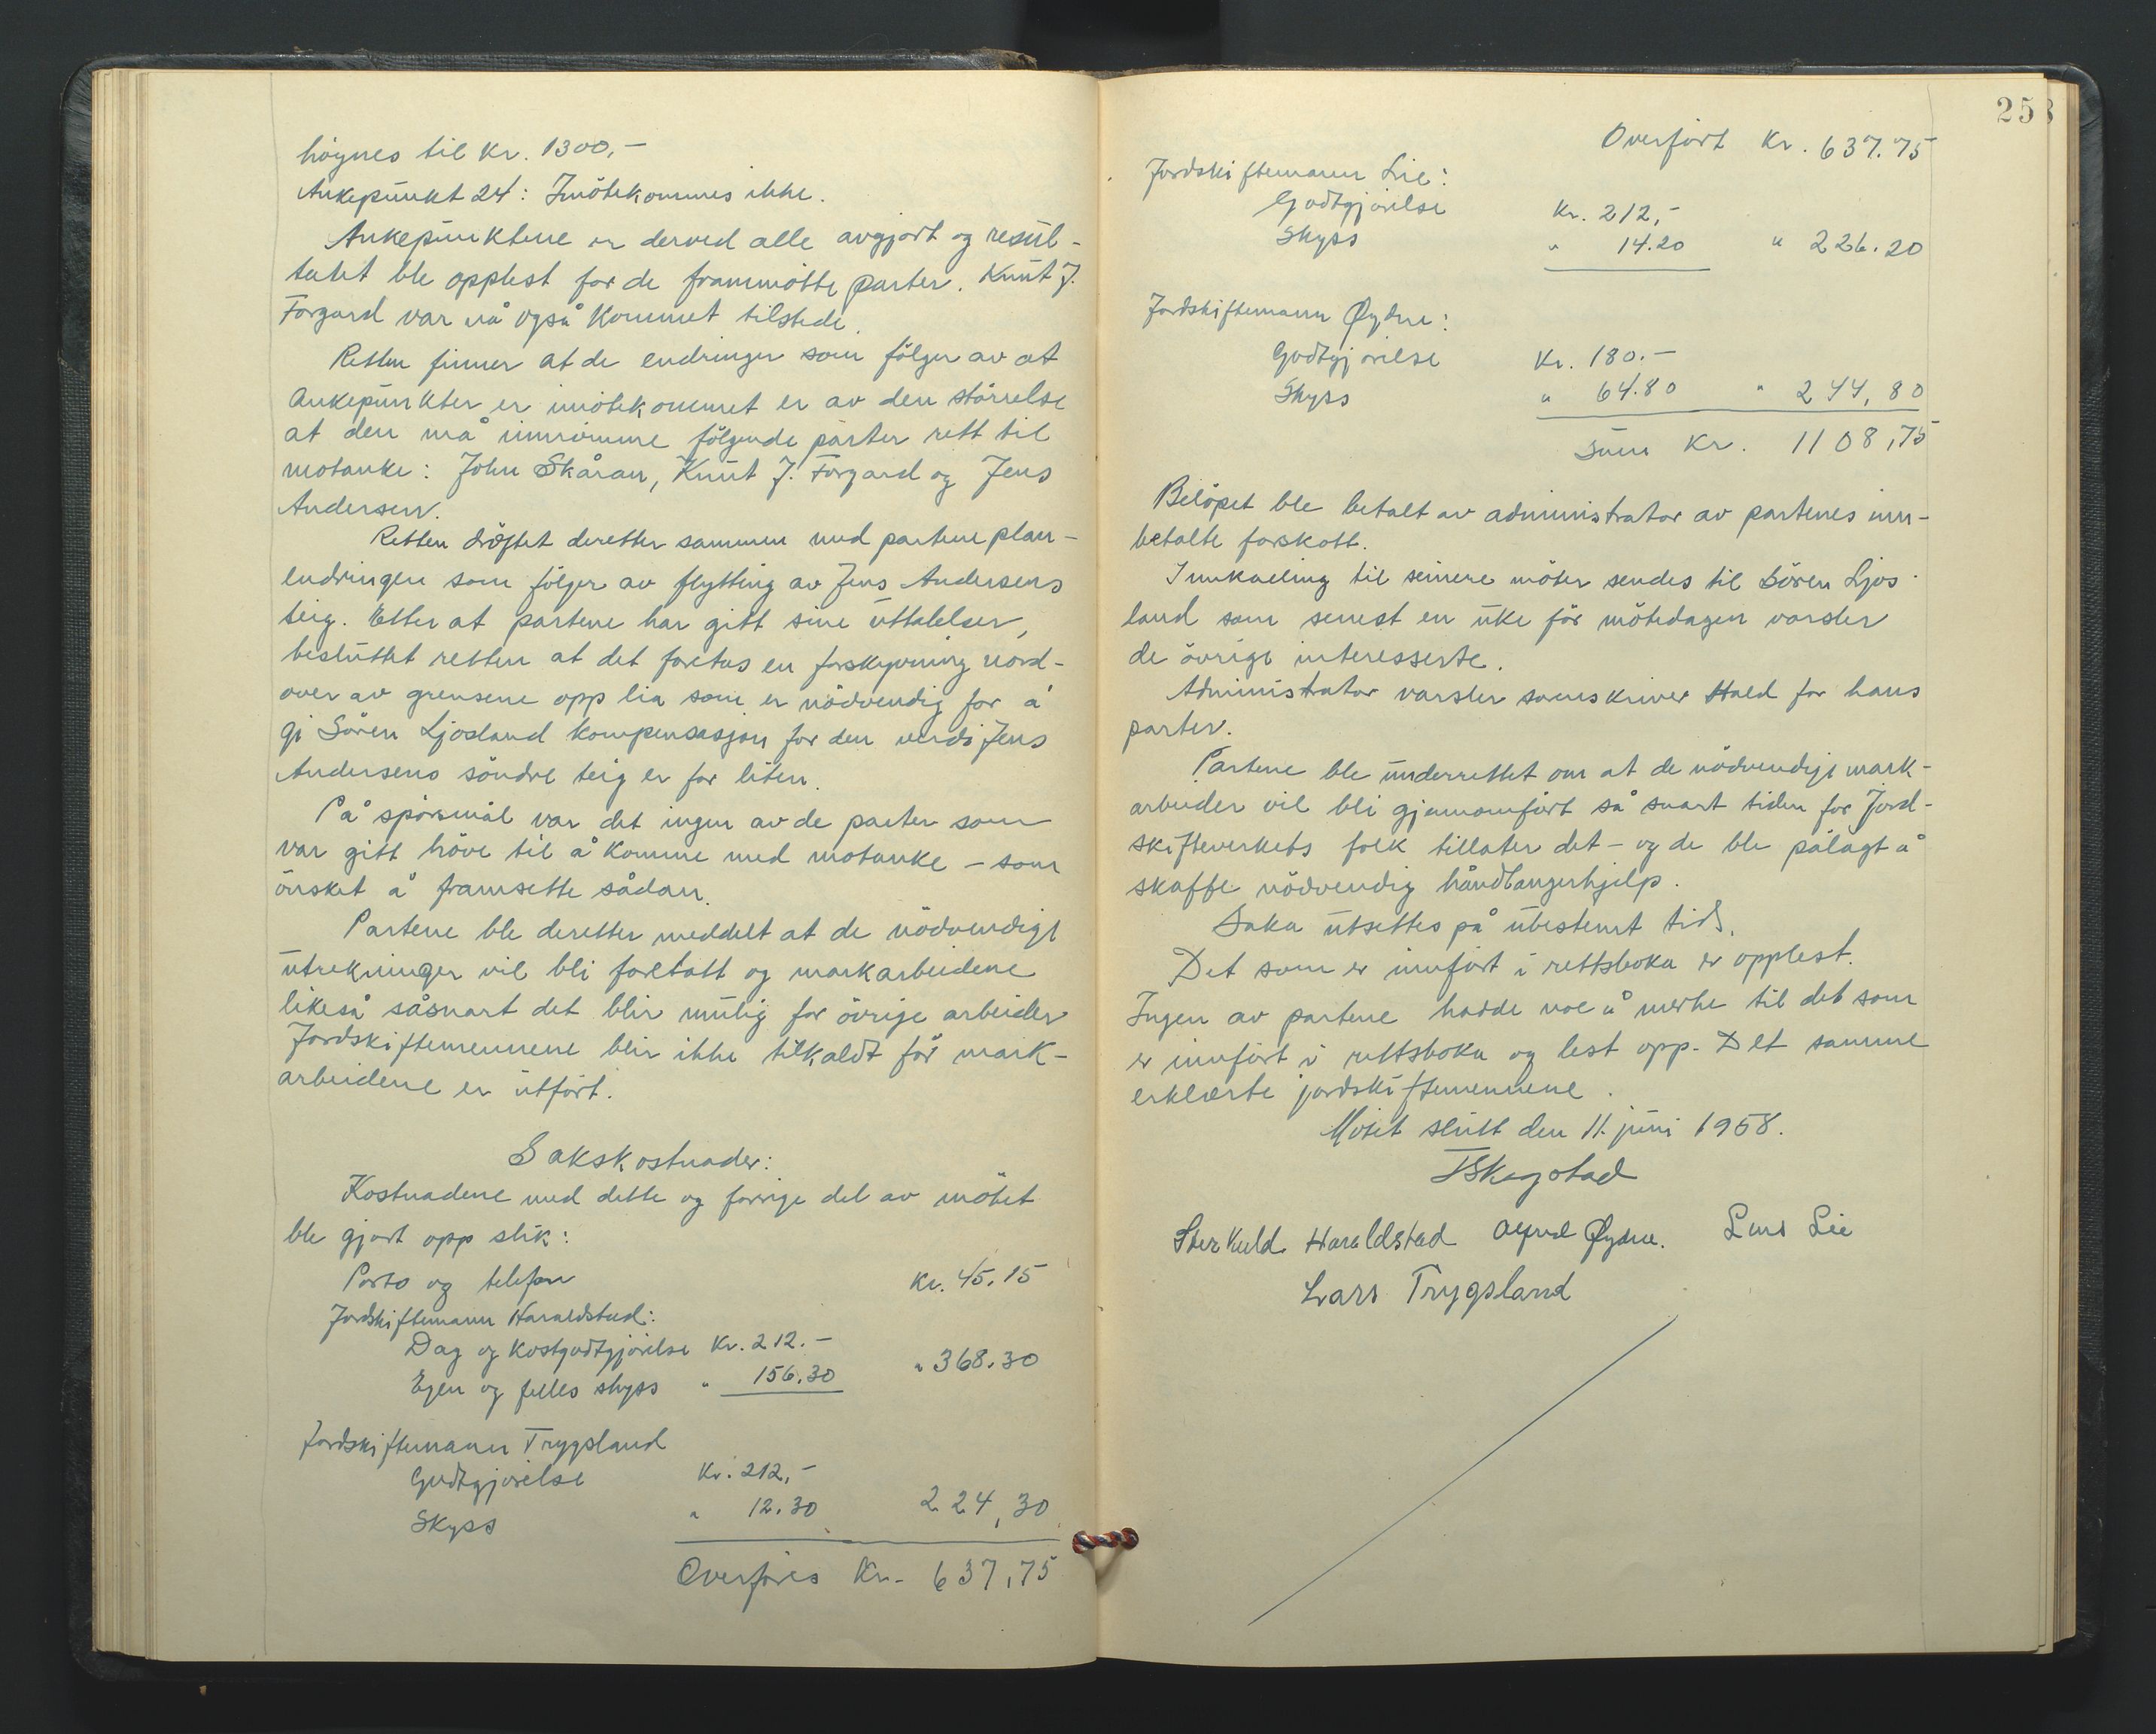 högnes til kr. 1300,-
Ankepunkt 24: Imötekommes ikke.
Ankepunktene er derved alle avgjort og resul-
tatet ble opplest for de frammötte parter. Knut J.
Forgard var nå også kommet tilstede.
Retten finner at de endringer som fölger av at
Ankepunkter er imötekommet er av den störrelse
at den må innrömme fölgende parter rett til
motanke: John Skåran, Knut J. Forgard og Jens
Andersen.
Retten dröftet deretter sammen med partene plan-
endringen som fölger av flytting av Jens Andersens
teig. Etter at partene har gitt sine uttalelser,
besluttet retten at det foretas en forskyvning nord-
over av grensene opp lia som er nödvendig for å
gi Sören Ljosland kompensasjon for den verdi Jens
Andersens söndre teig er for liten.
På spörsmål var det ingen av de parter som
var gitt höve til å komme med motanke – som
önsket å framsette sådan.
Partene ble deretter meddelt at de nödvendige
utrekninger vil bli foretatt og markarbeidene
likeså såsnart det blir mulig for övrige arbeider
Jordskiftemennene blir ikke tilkaldt för mark-
arbeidene er utfört.
Sakskostnader:
Kostnadene med dette og forrige del av mötet
ble gjort opp slik:
Porto og telefon kr. 45.15
Jordskiftemann Haraldstad:
Dag og kostgodtgjörelse kr. 212.-
Egen og felles skyss " 156.30 " 368.30
Jordskiftemann Trygsland
Godtgjörelse kr. 212,-
Skyss " 12.30 224,30
Overföres kr. 637,75
258
Overfört kr. 637.75
Jordskiftemann Lie:
Godtgjörelse kr. 212,-
Skyss " 14.20 " 226.20
Jordskiftemann Øydne:
Godtgjörelse kr. 180.-
Skyss " 64.80 " 244,80
Sum kr. 1108,75
Belöpet ble betalt av administrator av partenes inn-
betalte forskott.
Innkalling til seinere möter sendes til Sören Ljos-
land som senest en uke för mötedagen varsler
de övrige interesserte.
Administrator varsler sorenskriver Hald for hans
parter.
Partene ble underrettet om at de nödvendige mark-
arbeider vil bli gjennomfört så snart tiden for Jord-
skifteverkets folk tillater det – og de ble pålagt å
skaffe nödvendig håndlangerhjelp.
Saka utsettes på ubestemt tid.
Det som er innfört i rettsboka er opplest.
Ingen av partene hadde noe å merke til det som
er innfört i rettsboka og lest opp. Det samme
erklærte jordskiftemennene.
Mötet slutt den 11. juni 1958.
Skogstad
Haraldstad Alfred Øydne. Lars Lie
Lars Trygsland